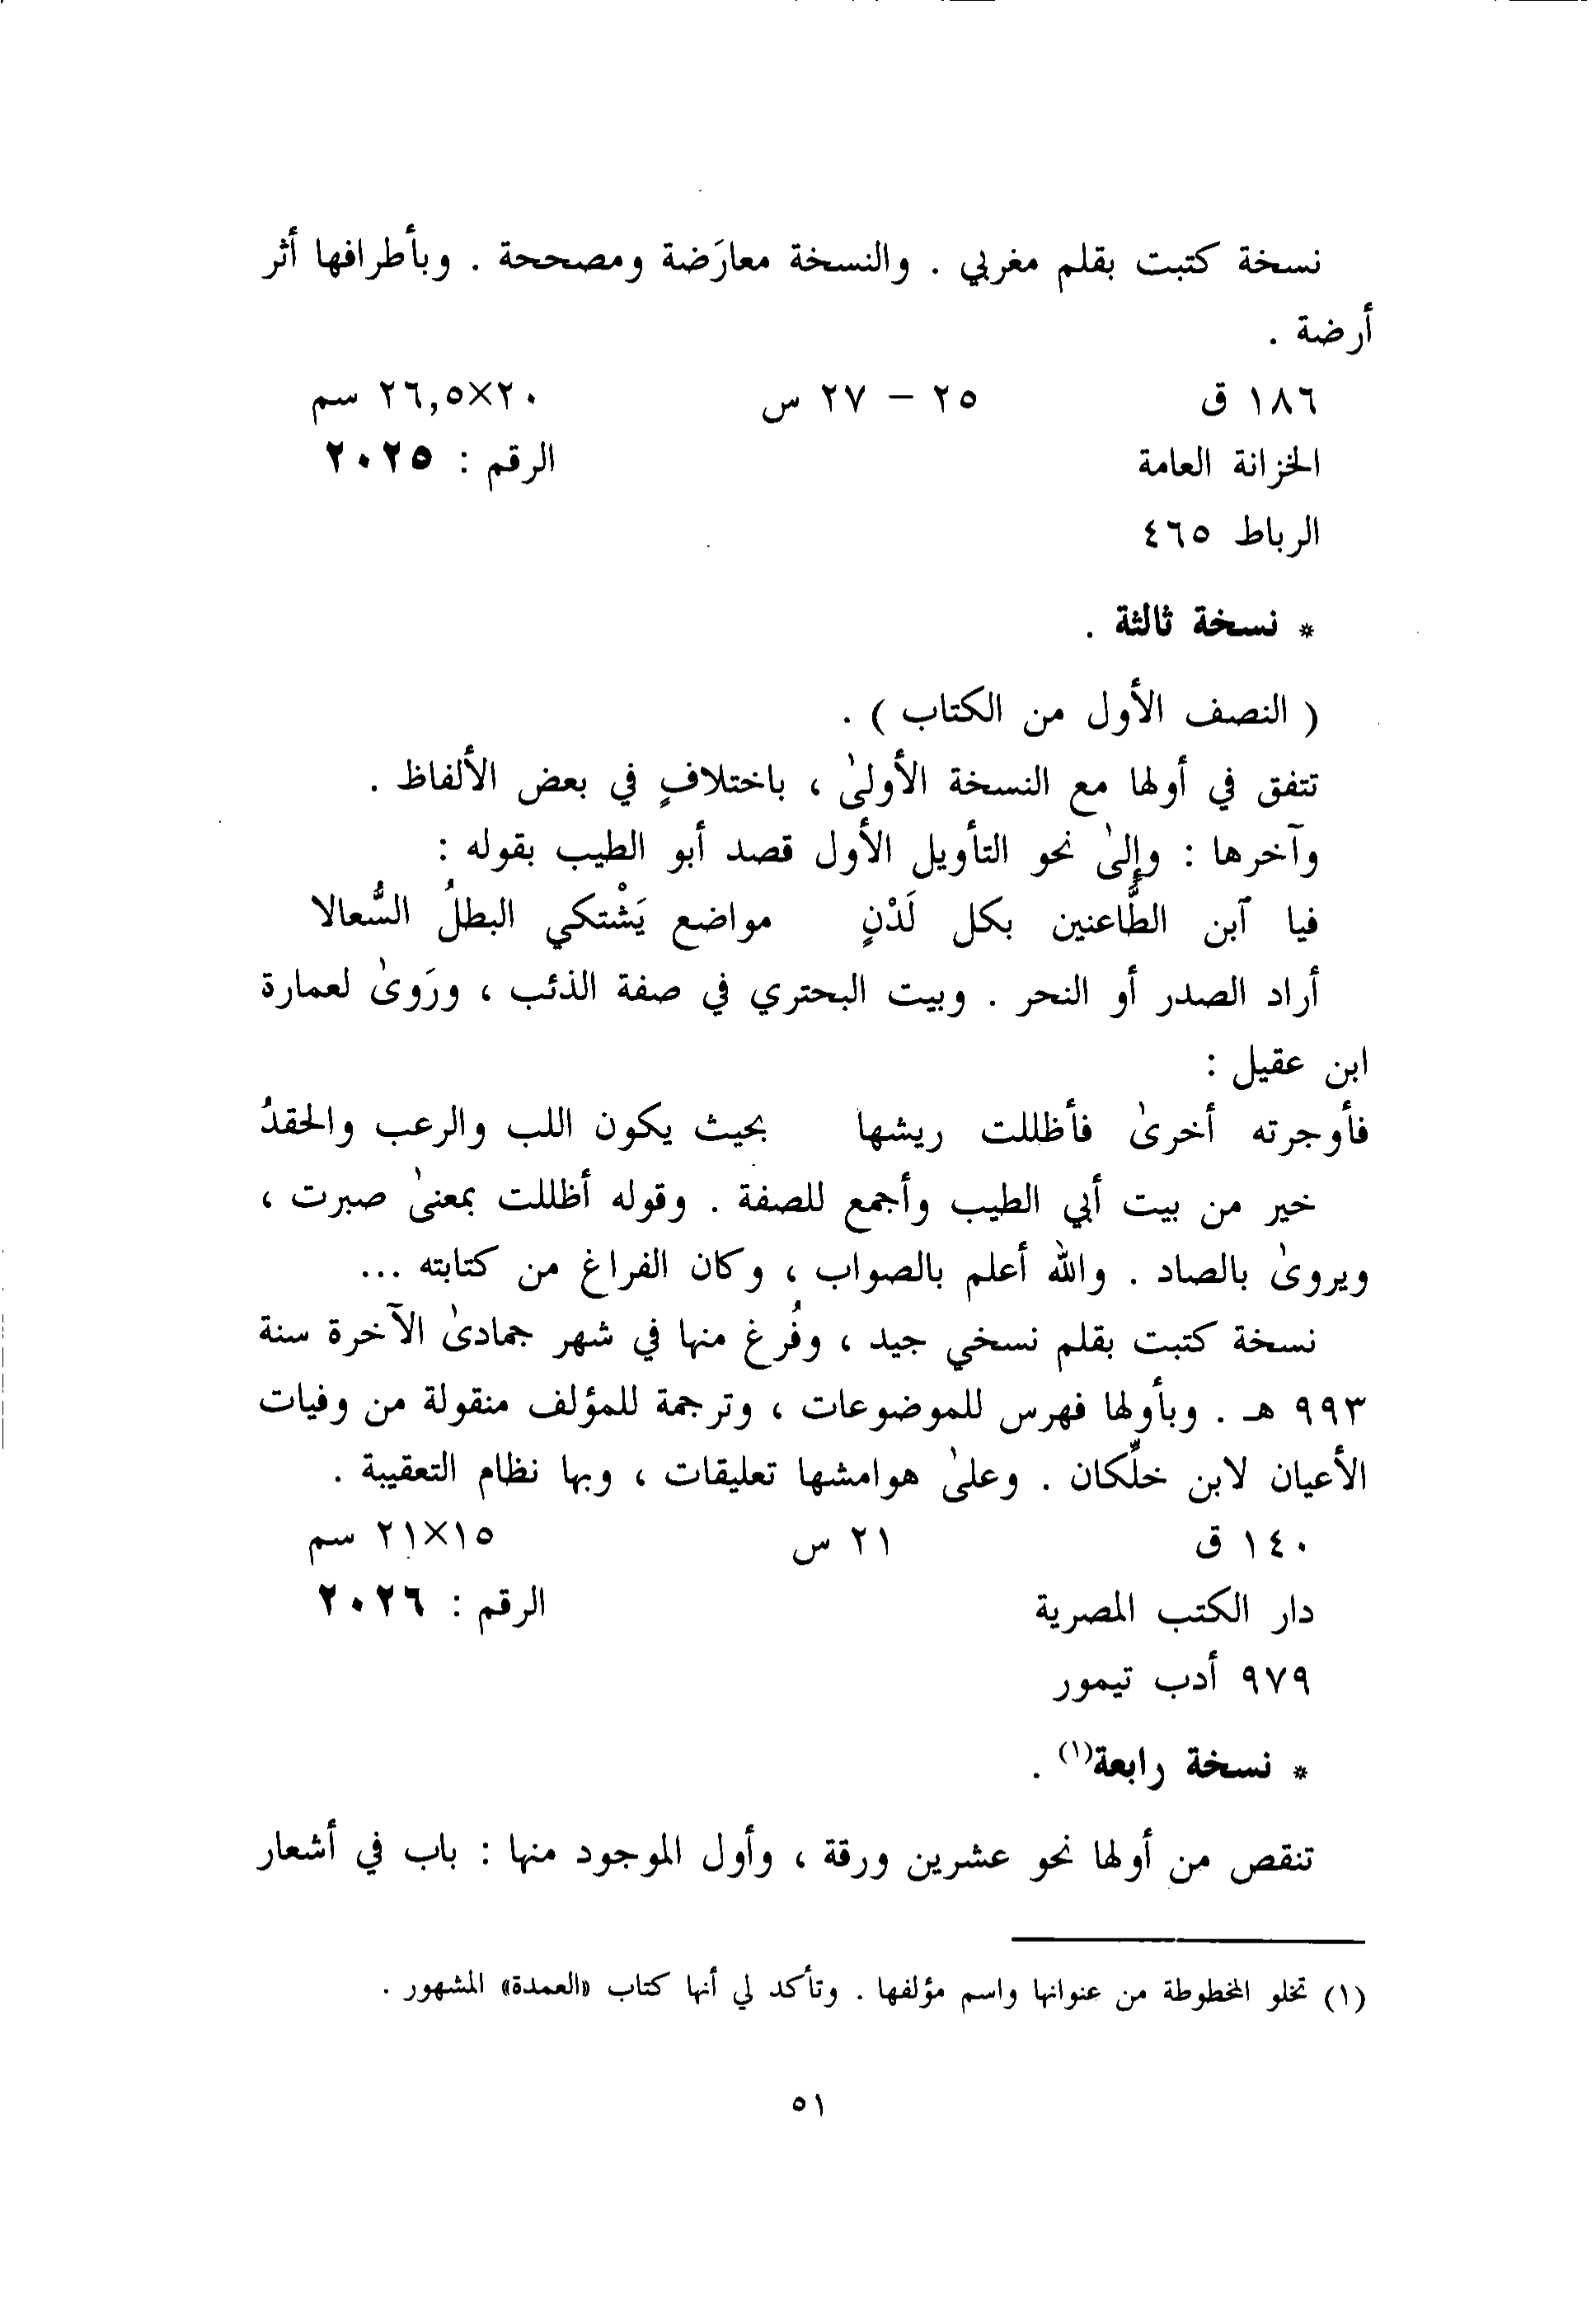 نسخة كتبت بقلم مغربي . والنسخة معارَضة ومصححة . وبأطرافها أثر
أرضة .
١٨٦ ق ٢٥ – ٢٧ س ٢٠×٢٦,٥ سم
الخزانة العامة الرقم : ٢٠٢٥
الرباط ٤٦٥
* نسخة ثالثة .
( النصف الأول من الكتاب ) .
تتفق في أولها مع النسخة الأولىٰ ، باختلافٍ في بعض الألفاظ .
وآخرها : وإلىٰ نحو التأويل الأول قصد أبو الطيب بقوله :
فيا ٱبن الطَّاعنين بكل لَدْنٍ مواضع يَشْتكي البطلُ السُّعالا
أراد الصدر أو النحر . وبيت البحتري في صفة الذئب ، ورَوىٰ لعمارة
ابن عقيل :
فأوجرته أخرىٰ فأظللت ريشها بحيث يكون اللب والرعب والحقدُ
خير من بيت أبي الطيب وأجمع للصفة . وقوله أظللت بمعنىٰ صبرت ،
ويروىٰ بالصاد . والله أعلم بالصواب ، وكان الفراغ من كتابته ...
نسخة كتبت بقلم نسخي جيد ، وفُرغ منها في شهر جمادىٰ الآخرة سنة
٩٩٣ هـ . وبأولها فهرس للموضوعات ، وترجمة للمؤلف منقولة من وفيات
الأعيان لابن خلِّكان . وعلىٰ هوامشها تعليقات ، وبها نظام التعقيبة .
١٤٠ ق ٢١ س ١٥×٢١ سم
دار الكتب المصرية الرقم : ٢٠٢٦
٩٧٩ أدب تيمور
* نسخة رابعة(١) .
تنقص من أولها نحو عشرين ورقة ، وأول الموجود منها : باب في أشعار
(١) تخلو المخطوطة من عنوانها واسم مؤلفها . وتأكد لي أنها كتاب «العمدة» المشهور .
٥١